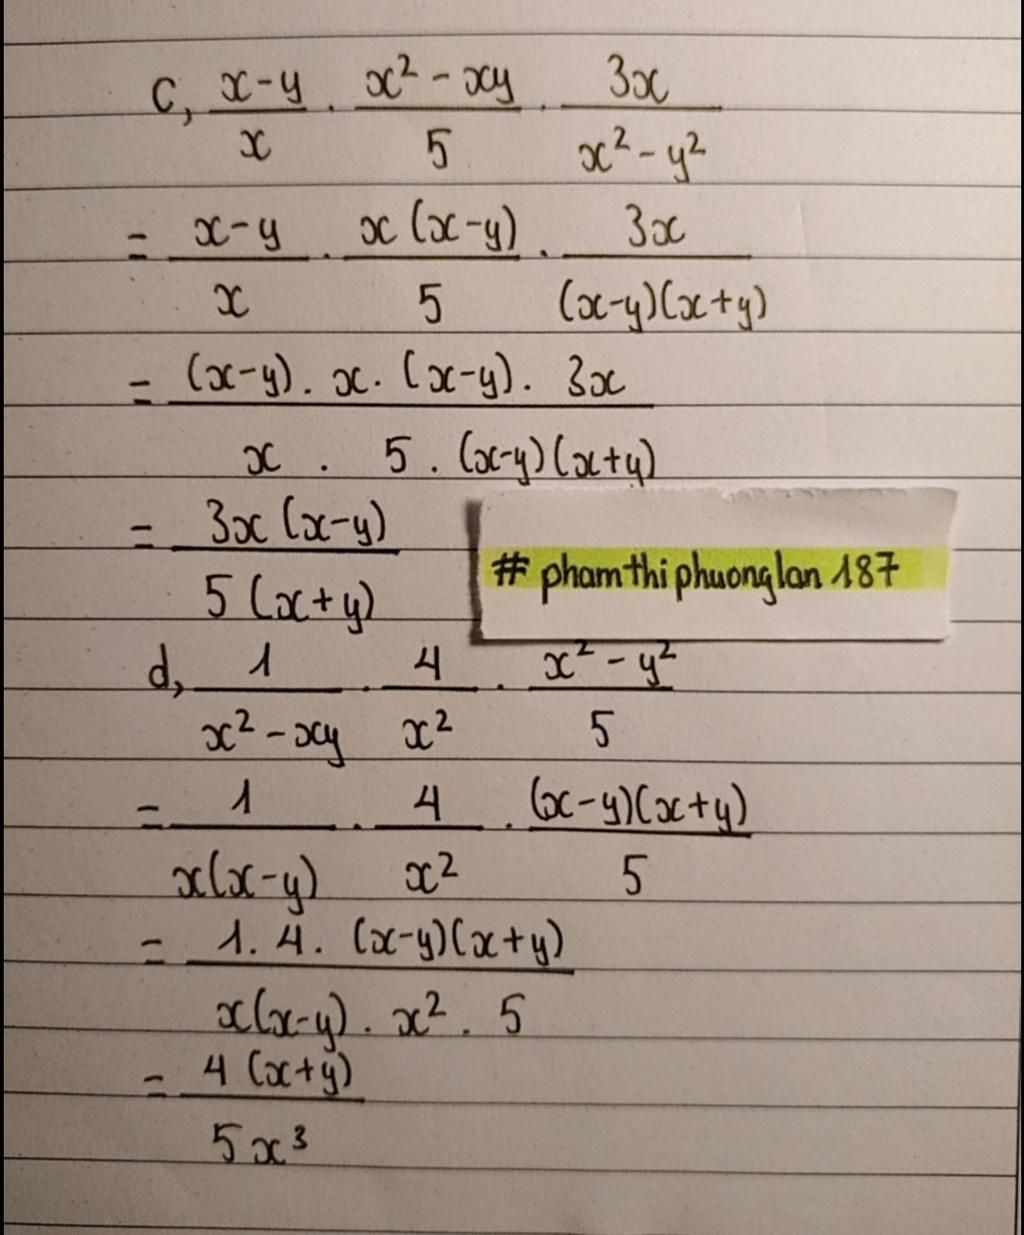 c, (x-y)/x . (x² - xy)/5 . 3x/(x² - y²)
= (x-y)/x . x(x-y)/5 . 3x/((x-y)(x+y))
= ((x-y) . x . (x-y) . 3x)/(x . 5 . (x-y)(x+y))
= 3x(x-y)/(5(x+y))
# phamthiphuonglan187
d, 1/(x² - xy) . 4/x² . (x² - y²)/5
= 1/(x(x-y)) . 4/x² . (x-y)(x+y)/5
= (1 . 4 . (x-y)(x+y))/(x(x-y) . x² . 5)
= 4(x+y)/(5x³)